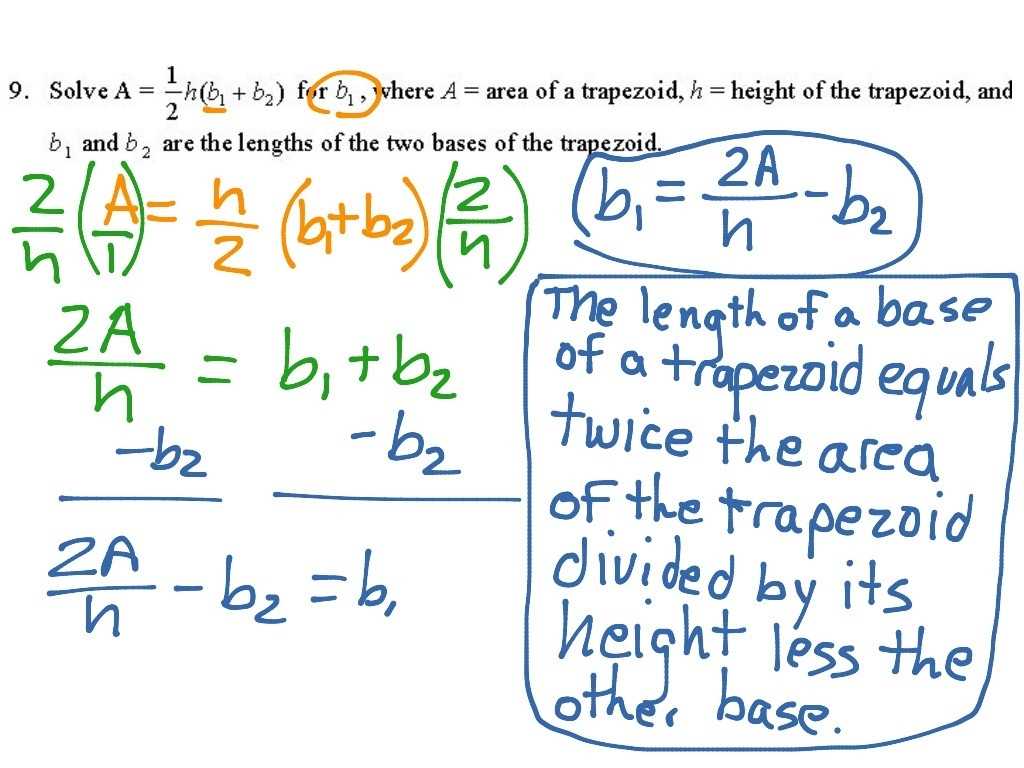 9. Solve A = 1/2 h(b₁ + b₂) for b₁, where A = area of a trapezoid, h = height of the trapezoid, and
b₁ and b₂ are the lengths of the two bases of the trapezoid.
2/h (A/1) = h/2 (b₁+b₂) (2/h)
2A/h = b₁+b₂
-b₂ -b₂
2A/h - b₂ = b₁
b₁ = 2A/h - b₂
The length of a base
of a trapezoid equals
twice the area
of the trapezoid
divided by its
height less the
other base.